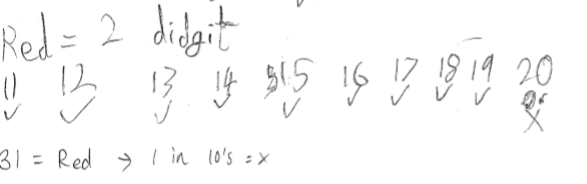 Red = 2 didgit
11 12 13 14 15 16 17 18 19 20
✓ ✓ ✓ ✓ ✓ ✓ ✓ ✓ ✓ X
31 = Red → 1 in 10's = x